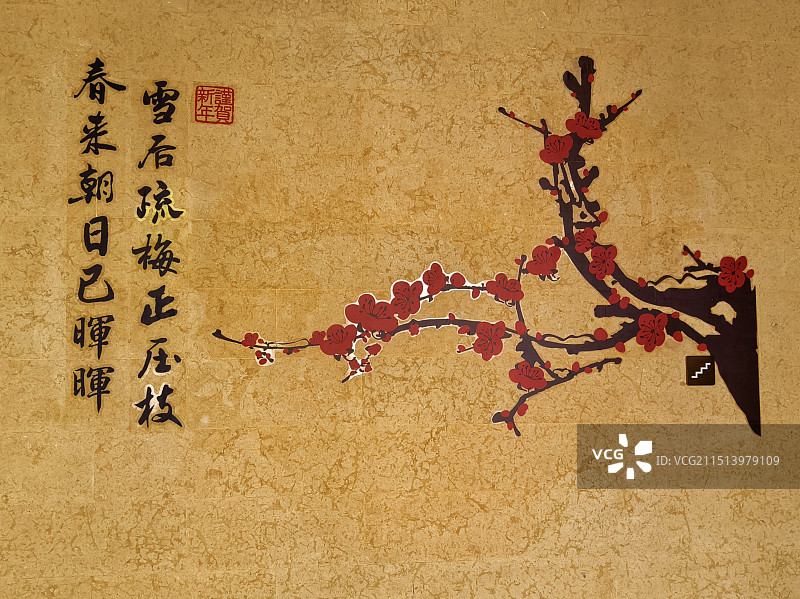 雪后疏梅正压枝
春来朝日已暉暉
謹賀
新年
VCG
VCG
ID:VCG211513979109